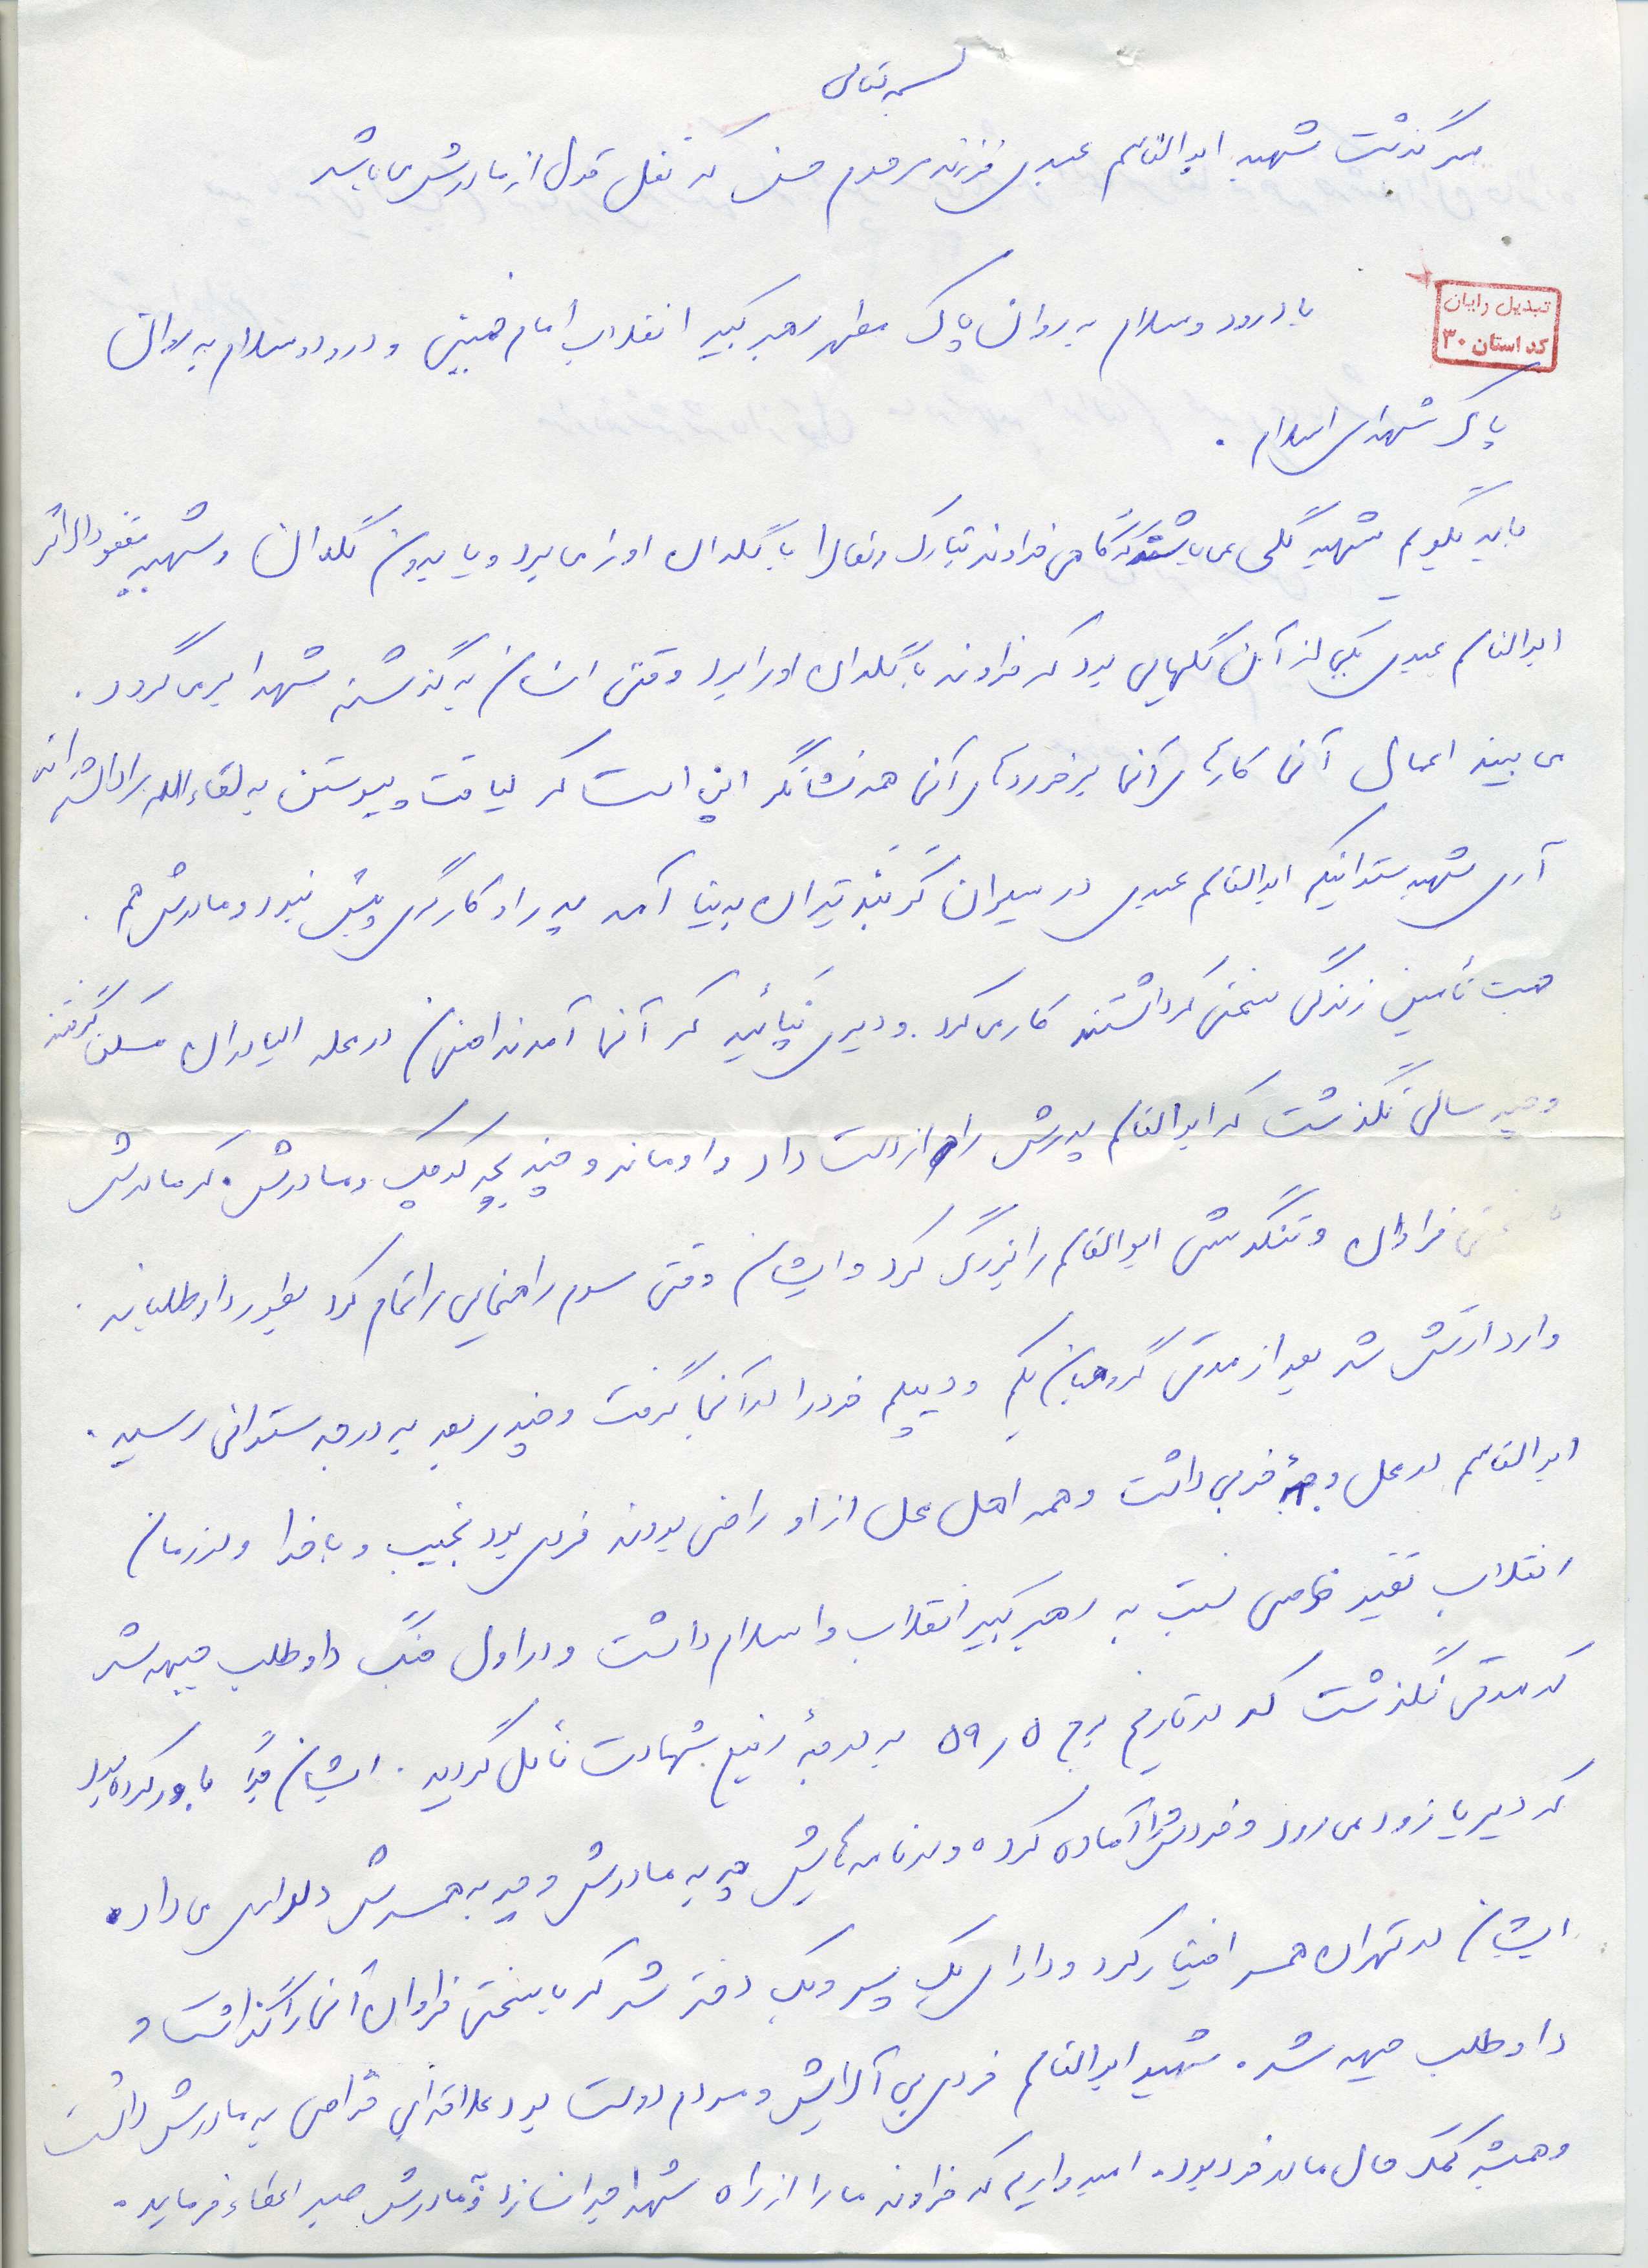 بسمه تعالی
سرگذشت شهید ابوالقاسم عبدی فرزند مرحوم حسن که نقل قول از مادرش می باشد
تبدیل رایان
کد استان ۳۰
با درود و سلام به روان پاک مطهر رهبر کبیر انقلاب امام خمینی و درود و سلام به روان
پاک شهدای اسلام .
باید بگویم شهید گلی می باشد که گاهی خداوند تبارک و تعالی با گلدان او را می برد و یا بدون گلدان و شهید مفقودالاثر
ابوالقاسم عبدی یکی از آن گلهایی بود که خداوند با گلدان او را برد وقتی انسان به گذشته شهدا برمی گردد .
می بیند اعمال آنها کارهای آنها برخوردهای آنها همه نشانگر این است که لیاقت پیوستن به لقاءالله را داشته اند
آری شهید ستوانیکم ابوالقاسم عبدی در سیران به دنیا آمد پدر او کارگری بیش نبود و مادرش هم .
جهت تأمین زندگی سختی که داشتند کار می کرد . و دیری نپائید که آنها آمدند اصفهان در محله الیادران مسکن گرفتند
و چند سالی نگذشت که ابوالقاسم پدرش را از دست داد و او ماند و چند بچه کوچک و مادرش . که مادرش
فراوان و تنگدستی ابوالقاسم را بزرگ کرد و ایشان وقتی سوم راهنمایی را تمام کرد بطور داوطلبانه .
وارد ارتش شد بعد از مدتی گروهبان یکم و دیپلم خود را در آنجا گرفت و چندی بعد به درجه ستوانی رسید .
ابوالقاسم در محل وجهۀ خوبی داشت و همه اهل محل از او راضی بودند فردی بود نجیب و با خدا و در زمان
انقلاب تقید خاصی نسبت به رهبر کبیر انقلاب و اسلام داشت و در اول جنگ داوطلب جبهه شد
که مدتی نگذشت که در تاریخ برج ۵ ر ۵۹ به درجۀ رفیع شهادت نائل گردید . ایشان قبلاً باور کرده بود
که دیر یا زود می رود و خودش را آماده کرده و در نامه هایش چه به مادرش و چه به همسرش دلداری می داد .
ایشان در تهران همسر اختیار کرد و دارای یک پسر و یک دختر شد که با سختی فراوان آنها را گذاشت و
داوطلب جبهه شد . شهید ابوالقاسم فردی بی آلایش و مردم دوست بود علاقه ای خاصی به مادرش داشت
و همیشه کمک حال مادر خود بود . امیدواریم که خداوند ما را از راه شهدا جدا نسازد و به مادرش صبر اعطاء فرماید .